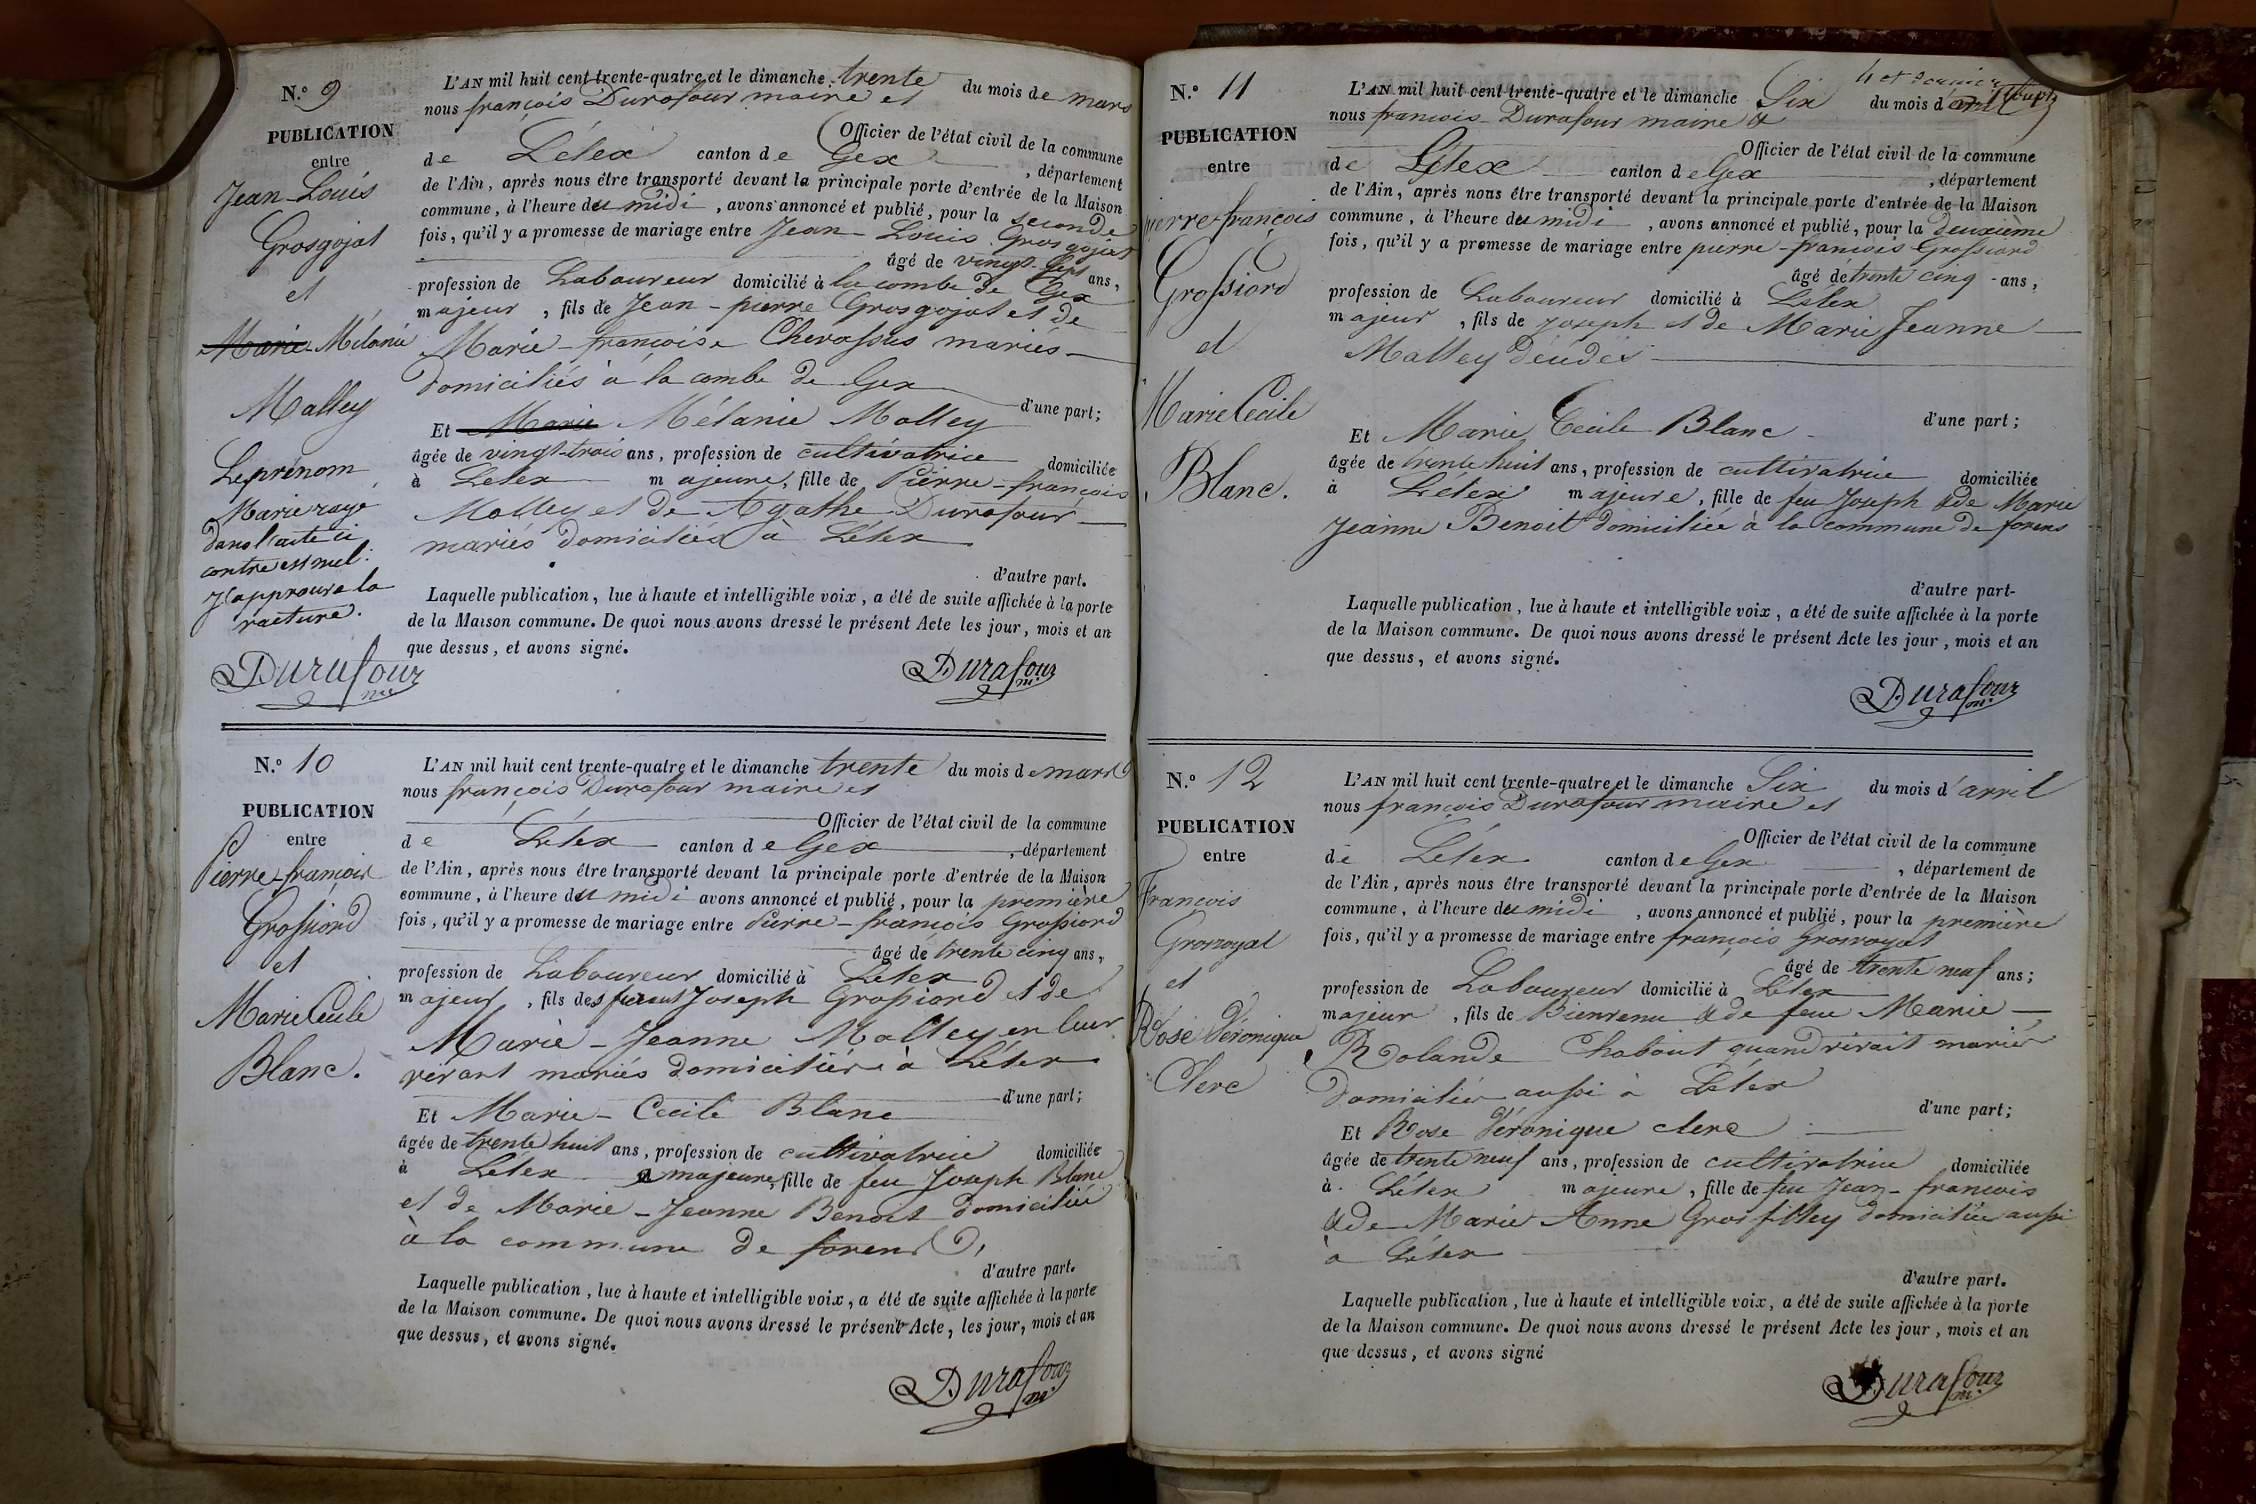 N.º 9
PUBLICATION
entre
Jean-Louis
Grosgojat
et
Marie-Mélanie
Malley
Le prénom
Marie rayé
dans l'acte ci
contre est nul.
J'approuve la
rature.
Durafour
L'AN mil huit cent trente-quatre et le dimanche trente du mois de mars
nous françois Durafour maire et
Officier de l'état civil de la commune
de Lélex canton de Gex, département
de l'Ain, après nous être transporté devant la principale porte d'entrée de la Maison
commune, à l'heure du midi, avons annoncé et publié, pour la seconde
fois, qu'il y a promesse de mariage entre Jean-Louis Grosgojat
âgé de vingt-sept ans,
profession de Laboureur domicilié à la combe de Gex
majeur, fils de Jean-pierre Grosgojat et de
Marie-françoise Chevassus mariés
domiciliés à la combe de Gex
d'une part;
Et Marie Mélanie Malley
âgée de vingt-trois ans, profession de cultivatrice domiciliée
à Lélex majeure, fille de Pierre-françois
Malley et de Agathe Durafour
mariés domiciliés à Lélex
d'autre part.
Laquelle publication, lue à haute et intelligible voix, a été de suite affichée à la porte
de la Maison commune. De quoi nous avons dressé le présent Acte les jour, mois et an
que dessus, et avons signé.
Durafour m.
N.º 10
PUBLICATION
entre
Pierre-françois
Grossiord
et
Marie Cecile
Blanc.
L'AN mil huit cent trente-quatre et le dimanche trente du mois de mars
nous françois Durafour maire et
Officier de l'état civil de la commune
de Lélex canton de Gex, département
de l'Ain, après nous être transporté devant la principale porte d'entrée de la Maison
commune, à l'heure du midi avons annoncé et publié, pour la première
fois, qu'il y a promesse de mariage entre Pierre-françois Grossiord
âgé de trente cinq ans,
profession de Laboureur domicilié à Lélex
majeur, fils des Joseph Grossiord et de
Marie-Jeanne Malley en leur
vivant mariés domiciliés à Lélex
d'une part;
Et Marie-Cecile Blanc
âgée de trente huit ans, profession de cultivatrice domiciliée
à Lélex majeure, fille de feu Joseph Blanc
et de Marie-Jeanne Benoit domiciliée
à la commune de forens
d'autre part.
Laquelle publication, lue à haute et intelligible voix, a été de suite affichée à la porte
de la Maison commune. De quoi nous avons dressé le présent Acte, les jour, mois et an
que dessus, et avons signé.
Durafour m.
N.º 11
PUBLICATION
entre
pierre-françois
Grossiord
et
Marie Cecile
Blanc.
L'AN mil huit cent trente-quatre et le dimanche Six du mois d'avril
nous francois Durafour maire &
Officier de l'état civil de la commune
de Lélex canton de Gex, département
de l'Ain, après nous être transporté devant la principale porte d'entrée de la Maison
commune, à l'heure du midi, avons annoncé et publié, pour la deuxième
fois, qu'il y a promesse de mariage entre pierre-françois Grossiord
âgé de trente cinq ans,
profession de Laboureur domicilié à Lélex
majeur, fils de Joseph et de Marie Jeanne
Malley décédés
d'une part;
Et Marie Cecile Blanc
âgée de trente huit ans, profession de cultivatrice domiciliée
à Lélex majeure, fille de feu Joseph & de Marie
Jeanne Benoit domiciliée à la commune de forens
d'autre part-
Laquelle publication, lue à haute et intelligible voix, a été de suite affichée à la porte
de la Maison commune. De quoi nous avons dressé le présent Acte les jour, mois et an
que dessus, et avons signé.
Durafour m.
N.º 12
PUBLICATION
entre
François
Grosroyat
et
Rose Véronique
Clerc
L'AN mil huit cent trente-quatre et le dimanche Six du mois d'avril
nous françois Durafour maire et
Officier de l'état civil de la commune
de Lélex canton de Gex, département de
de l'Ain, après nous être transporté devant la principale porte d'entrée de la Maison
commune, à l'heure du midi, avons annoncé et publié, pour la première
fois, qu'il y a promesse de mariage entre françois Grosroyat
âgé de trente neuf ans;
profession de Laboureur domicilié à Lélex
majeur, fils de Bienvenu & de feue Marie
Rolande Chabout quand vivait mariés
domiciliés aussi à Lélex
d'une part;
Et Rose Véronique clerc
âgée de trente neuf ans, profession de cultivatrice domiciliée
à Lélex majeure, fille de feu Jean-francois
& de Marie Anne Grosfilley domiciliée aussi
à Lélex
d'autre part.
Laquelle publication, lue à haute et intelligible voix, a été de suite affichée à la porte
de la Maison commune. De quoi nous avons dressé le présent Acte les jour, mois et an
que dessus, et avons signé
Durafour m.